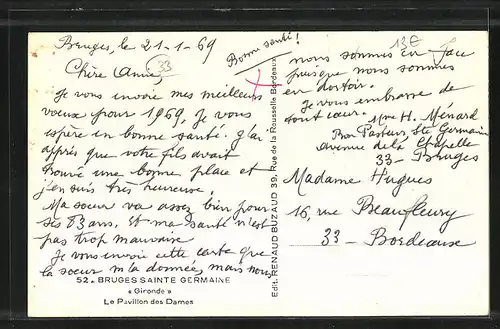 Bruges, le 21-1-69
Bonne santé!
13€
Chère Anne, 33
Je vous envoie mes meilleurs
voeux pour 1969, Je vous
espère en bonne santé. J'ai
appris que votre fils avait
trouvé une bonne place et
j'en suis très heureuse.
Ma soeur va assez bien pour
ses 83 ans. Et ma santé n'est
pas trop mauvaise
Je vous envoie cette carte que
la soeur m'a donnée, mais nous
nous sommes en face
puisque nous sommes
en dortoir.
Je vous embrasse de
tout cœur.
Mme H. Ménard
Pasteur, Ste Germaine
avenue de la Chapelle
33 - Bruges
Madame Hugues
16, rue Beaufleury
33 - Bordeaux
52. BRUGES SAINTE GERMAINE
« Gironde »
Le Pavillon des Dames
Edit. RENAUD BUZAUD 39, Rue de la Rousselle Bordeaux